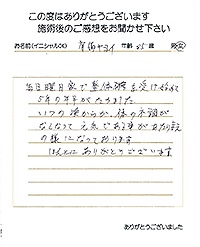 この度はありがとうございます
施術後のご感想をお聞かせ下さい
お名前(イニシャルOK) 年齢 歳
毎日曜日家で整体術を受け始めて
5年の年月がたちました
いつの頃からか、体の不調が
なくなって元気である事があたり前
の様になっております
ほんとにありがとうございます
ありがとうございました